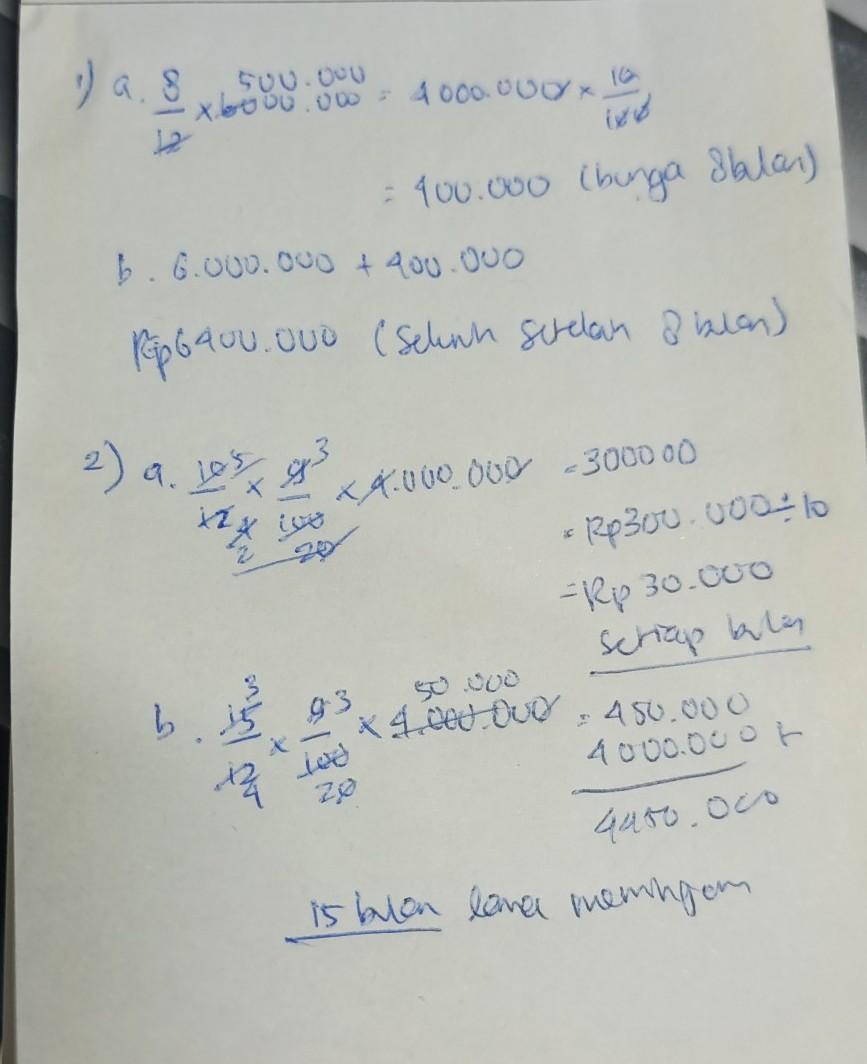 1) a. 8/12 × 6000.000 500.000 = 4000.000 × 10/100
= 400.000 (bunga 8 bulan)
b. 6.000.000 + 400.000
Rp6400.000 (Seluruh setelah 8 bulan)
2) a. 10/12 5 4 2 × 9/100 3 20 × 4.000.000 = 300000
= Rp300.000 ÷ 10
= Rp 30.000
setiap bulan
b. 15/12 3 4 × 9/100 3 20 × 4.000.000 50.000 = 450.000
4000.000 +
4450.000
15 bulan lama meminjam